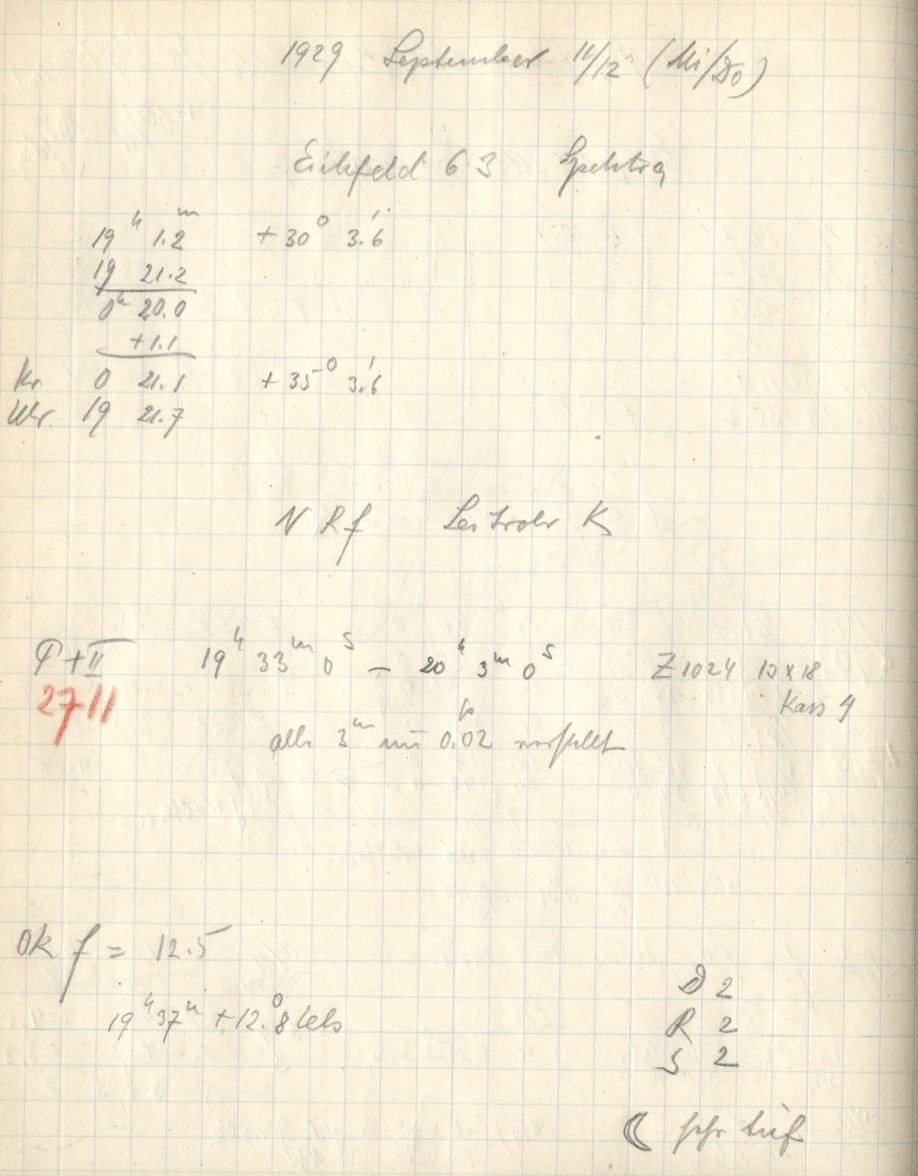 1929 September 11/12 (Mi/Do)
Eichfeld 63 Spektra
19h 1.2m +30° 3.'6
19 21.2
0h 20.0
+1.1
Kr 0 21.1 +35° 3.'6
Uhr. 19 21.7
N Rf Leitrohr K
I+II 19h 33m 0s – 20h 3m 0s Z 1024 12x18
2711 Kass 4
alle 3m um 0.02 verstellt
Ok f = 12.5
19h 37m +12.°8 Cels
D 2
R 2
S 2
☾ sehr tief